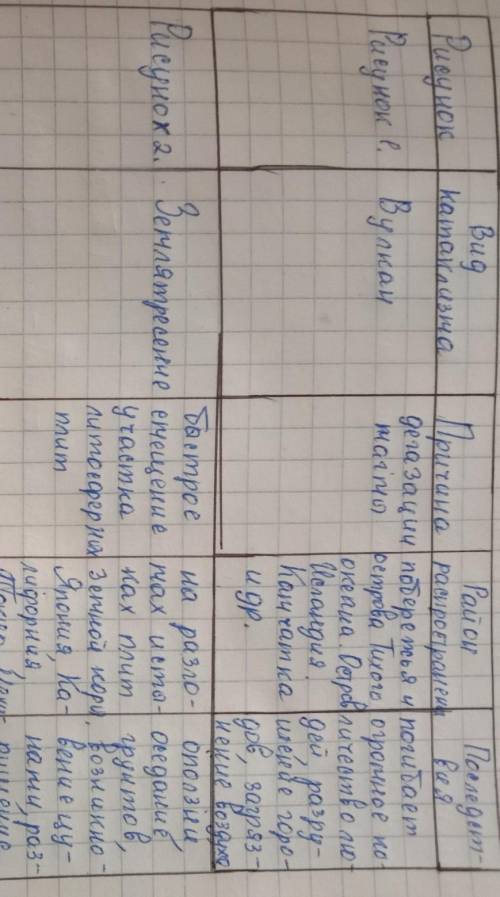 Рисунок
Вид
катаклизма
Причина
Район
распространен
Последст-
вия
Рисунок
Вулкан
дегазации
магмы
побережья и
острова Тихого
океана. Остров
Исландия,
Камчатка
и др.
погибает
огромное ко-
личество лю-
дей, разру-
шение горо-
дов, загряз-
нение воздуха
Рисунок 2.
Землятресение
быстрое
смещение
участка
литосферных
плит
на разло-
мах и сты-
ках плит
земной коры,
Япония, Ка-
лифорния,
оползни
оседание
грунтов,
возникно-
вение цу-
нами, раз-